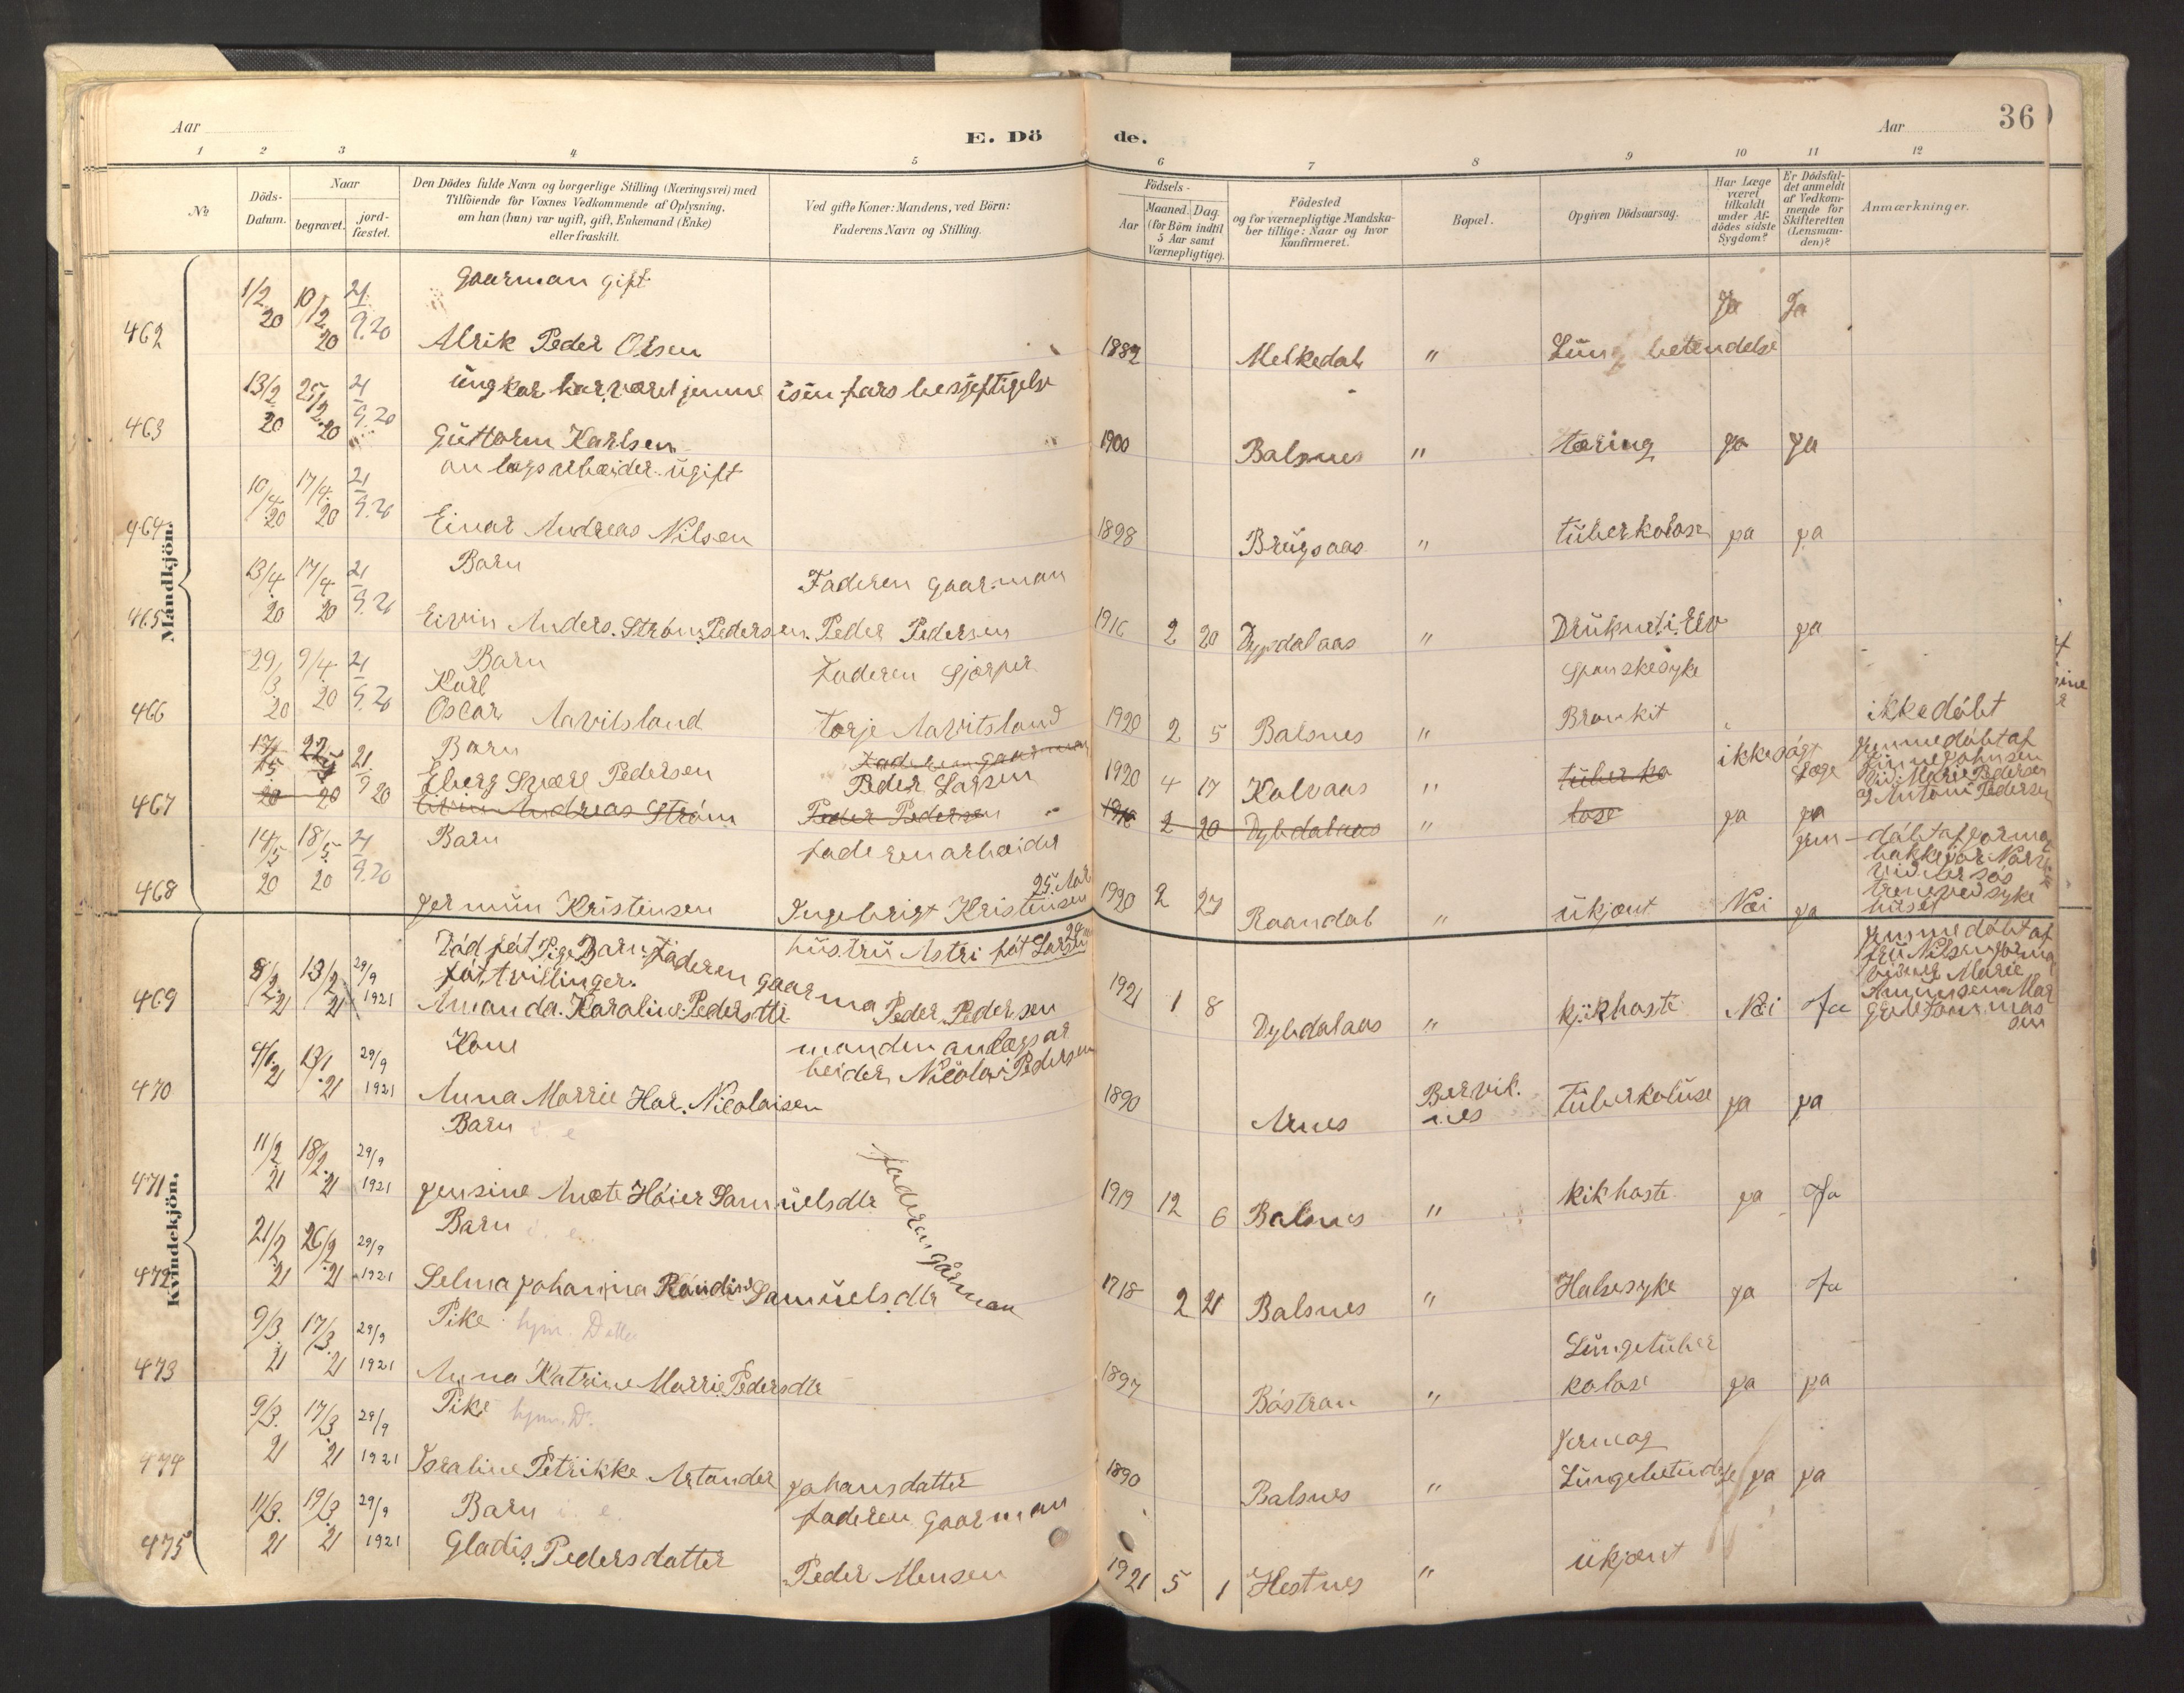 Aar
E. Dö
de.
Aar
36
1 2 3 4 5 6 7 8 9 10 11 12
No
Döds-Datum.
Naar
begravet.
jord-fæstet.
Den Dödes fulde Navn og borgerlige Stilling (Næringsvei) med
Tilföiende for Voxnes Vedkommende af Oplysning,
om han (hun) var ugift, gift, Enkemand (Enke)
eller fraskilt.
Ved gifte Koner: Mandens, ved Börn:
Faderens Navn og Stilling.
Födsels-
Aar
Maaned. Dag.
(for Börn indtil
5 Aar samt
Værnepligtige).
Födested
og for værnepligtige Mandska-
ber tillige: Naar og hvor
Konfirmeret.
Bopæl.
Opgiven Dödsaarsag.
Har Læge
været
tilkaldt
under Af-
dödes sidste
Sygdom?
Er Dödsfal-
det anmeldt
af Vedkom-
mende for
Skifteretten
(Lensman-
den)?
Anmærkninger.
Mandkjön.
gaarman gift
462 1/2 20 10/2 20 21/9.20 Alrik Peder Olsen 1882 Melkedal " Lung betendelse Ja Ja
ungkar har været jemme i sin fars besjeftigelse
463 13/2 20 25/2 20 21/9.20 Guttorm Karlsen 1900 Balsnes " tæring ja ja
anlegsarbeider ugift
464 10/4 20 17/4 20 21/9.20 Einar Andreas Nilsen 1898 Brugsaas " tuberkolose ja ja
Barn Faderen gaarman
465 13/4 20 17/4 20 21/9.20 Eivin Anders. Strøm. Pedersen. Peder Pedersen 1916 2 20 Dypdalaas " Druknet i Elv ja
Barn faderen
Karl
spanskesyke
466 29/3 20 9/4 20 21/9.20 Oscar Aavitsland Torje Aavitsland 1920 2 5 Balsnes " Bronkit ikke døbt
Barn Faderen gaarman
467 22/5 20 21/9 20 Eberg Sværl Pedersen Peder Larsen 1920 4 17 Kalvaas " tuberko ikke søgt Læge
Andreas Strøm Peder Pedersen 1916 2 20 Dybdalaas " lose ja ja
Antoni Pedersen
Barn faderen arbeider
468 14/5 20 18/5 20 21/9.20 Jermun Kristensen Ingebrigt Kristensen 25. Aar 1920 2 27 Raandal " ukjent Nei ja
Kvindekjön.
Død føt Pige Barn. Faderen gaarma hustru Astri føt Larsen
føt tvillinger.
469 8/2 21 13/2 21 29/9 1921 Amanda. Karaline. Pedersdtr Peder Pedersen 1921 1 8 Dybdalaas " kjikhoste Nei Ja
Jemmedøbt af
Marie
Kone manden anlægsar
470 21 21 29/9 1921 Anna Marrie Har. Nicolaisen beider Nicolai Pedersen 1890 Arnes Bervik. nes Tuberkoluse ja ja
Barn i e
471 11/2 21 18/2 21 29/9 1921 Jensine Anete Høier Samuelsdtr faderen gårman 1919 12 6 Balsnes " kikhoste ja Ja
Barn i. e.
472 21/2 21 26/2 21 29/9 1921 Selma Johanna Randine Samuelsdtr 1918 2 21 Balsnes " Halsesyke ja Ja
Pike hjm. Datter
Lungetuber
473 9/3. 21 17/3. 21 29/9 1921 Anna Katrine Marrie Pedersdtr 1897 Båstran " kolose ja ja
Pike hjm. D.
474 9/3. 21 17/3. 21 29/9 1921 Israline Petrikke Artander Johansdatter 1890 Balsnes " Lungebetendelse ja ja
Barn i. e. faderen gaarman
475 11/3. 21 19/3. 21 29/9 1921 Gladis. Pedersdatter Peder Mensen 1921 5 1 Hestnes " ukjent